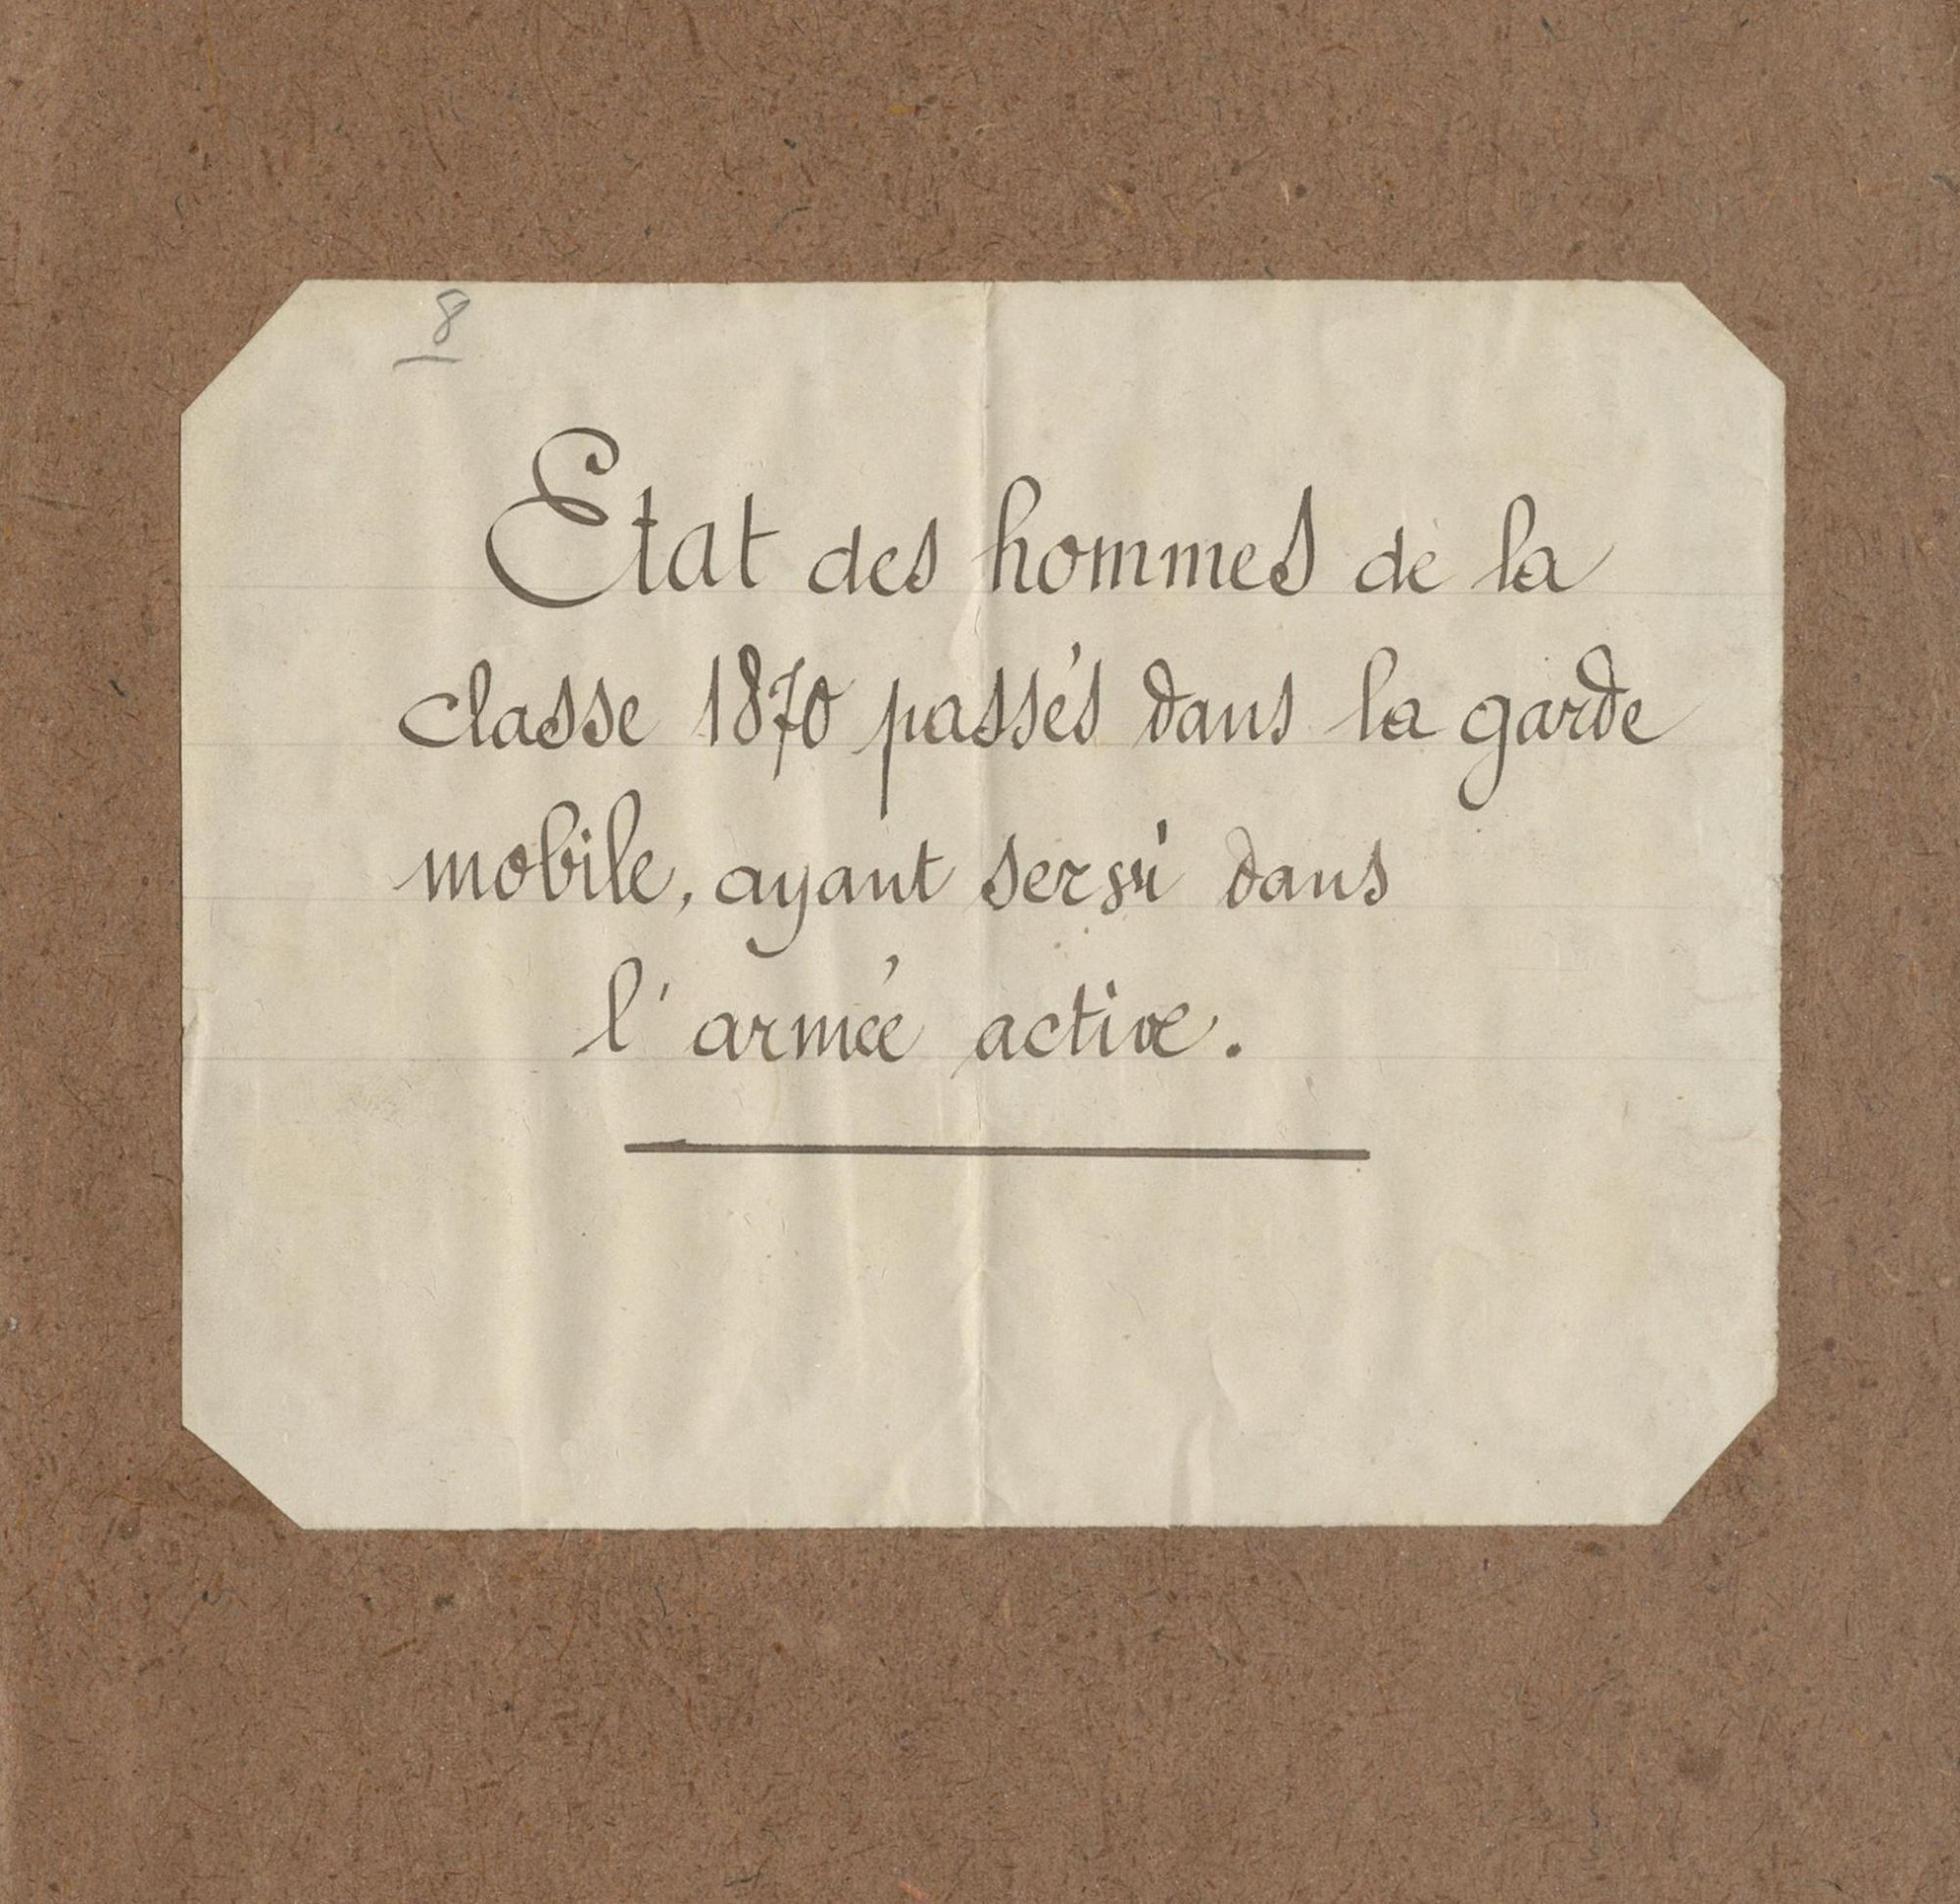 8
Etat des hommes de la
classe 1870 passés dans la garde
mobile, ayant servi dans
l'armée active.